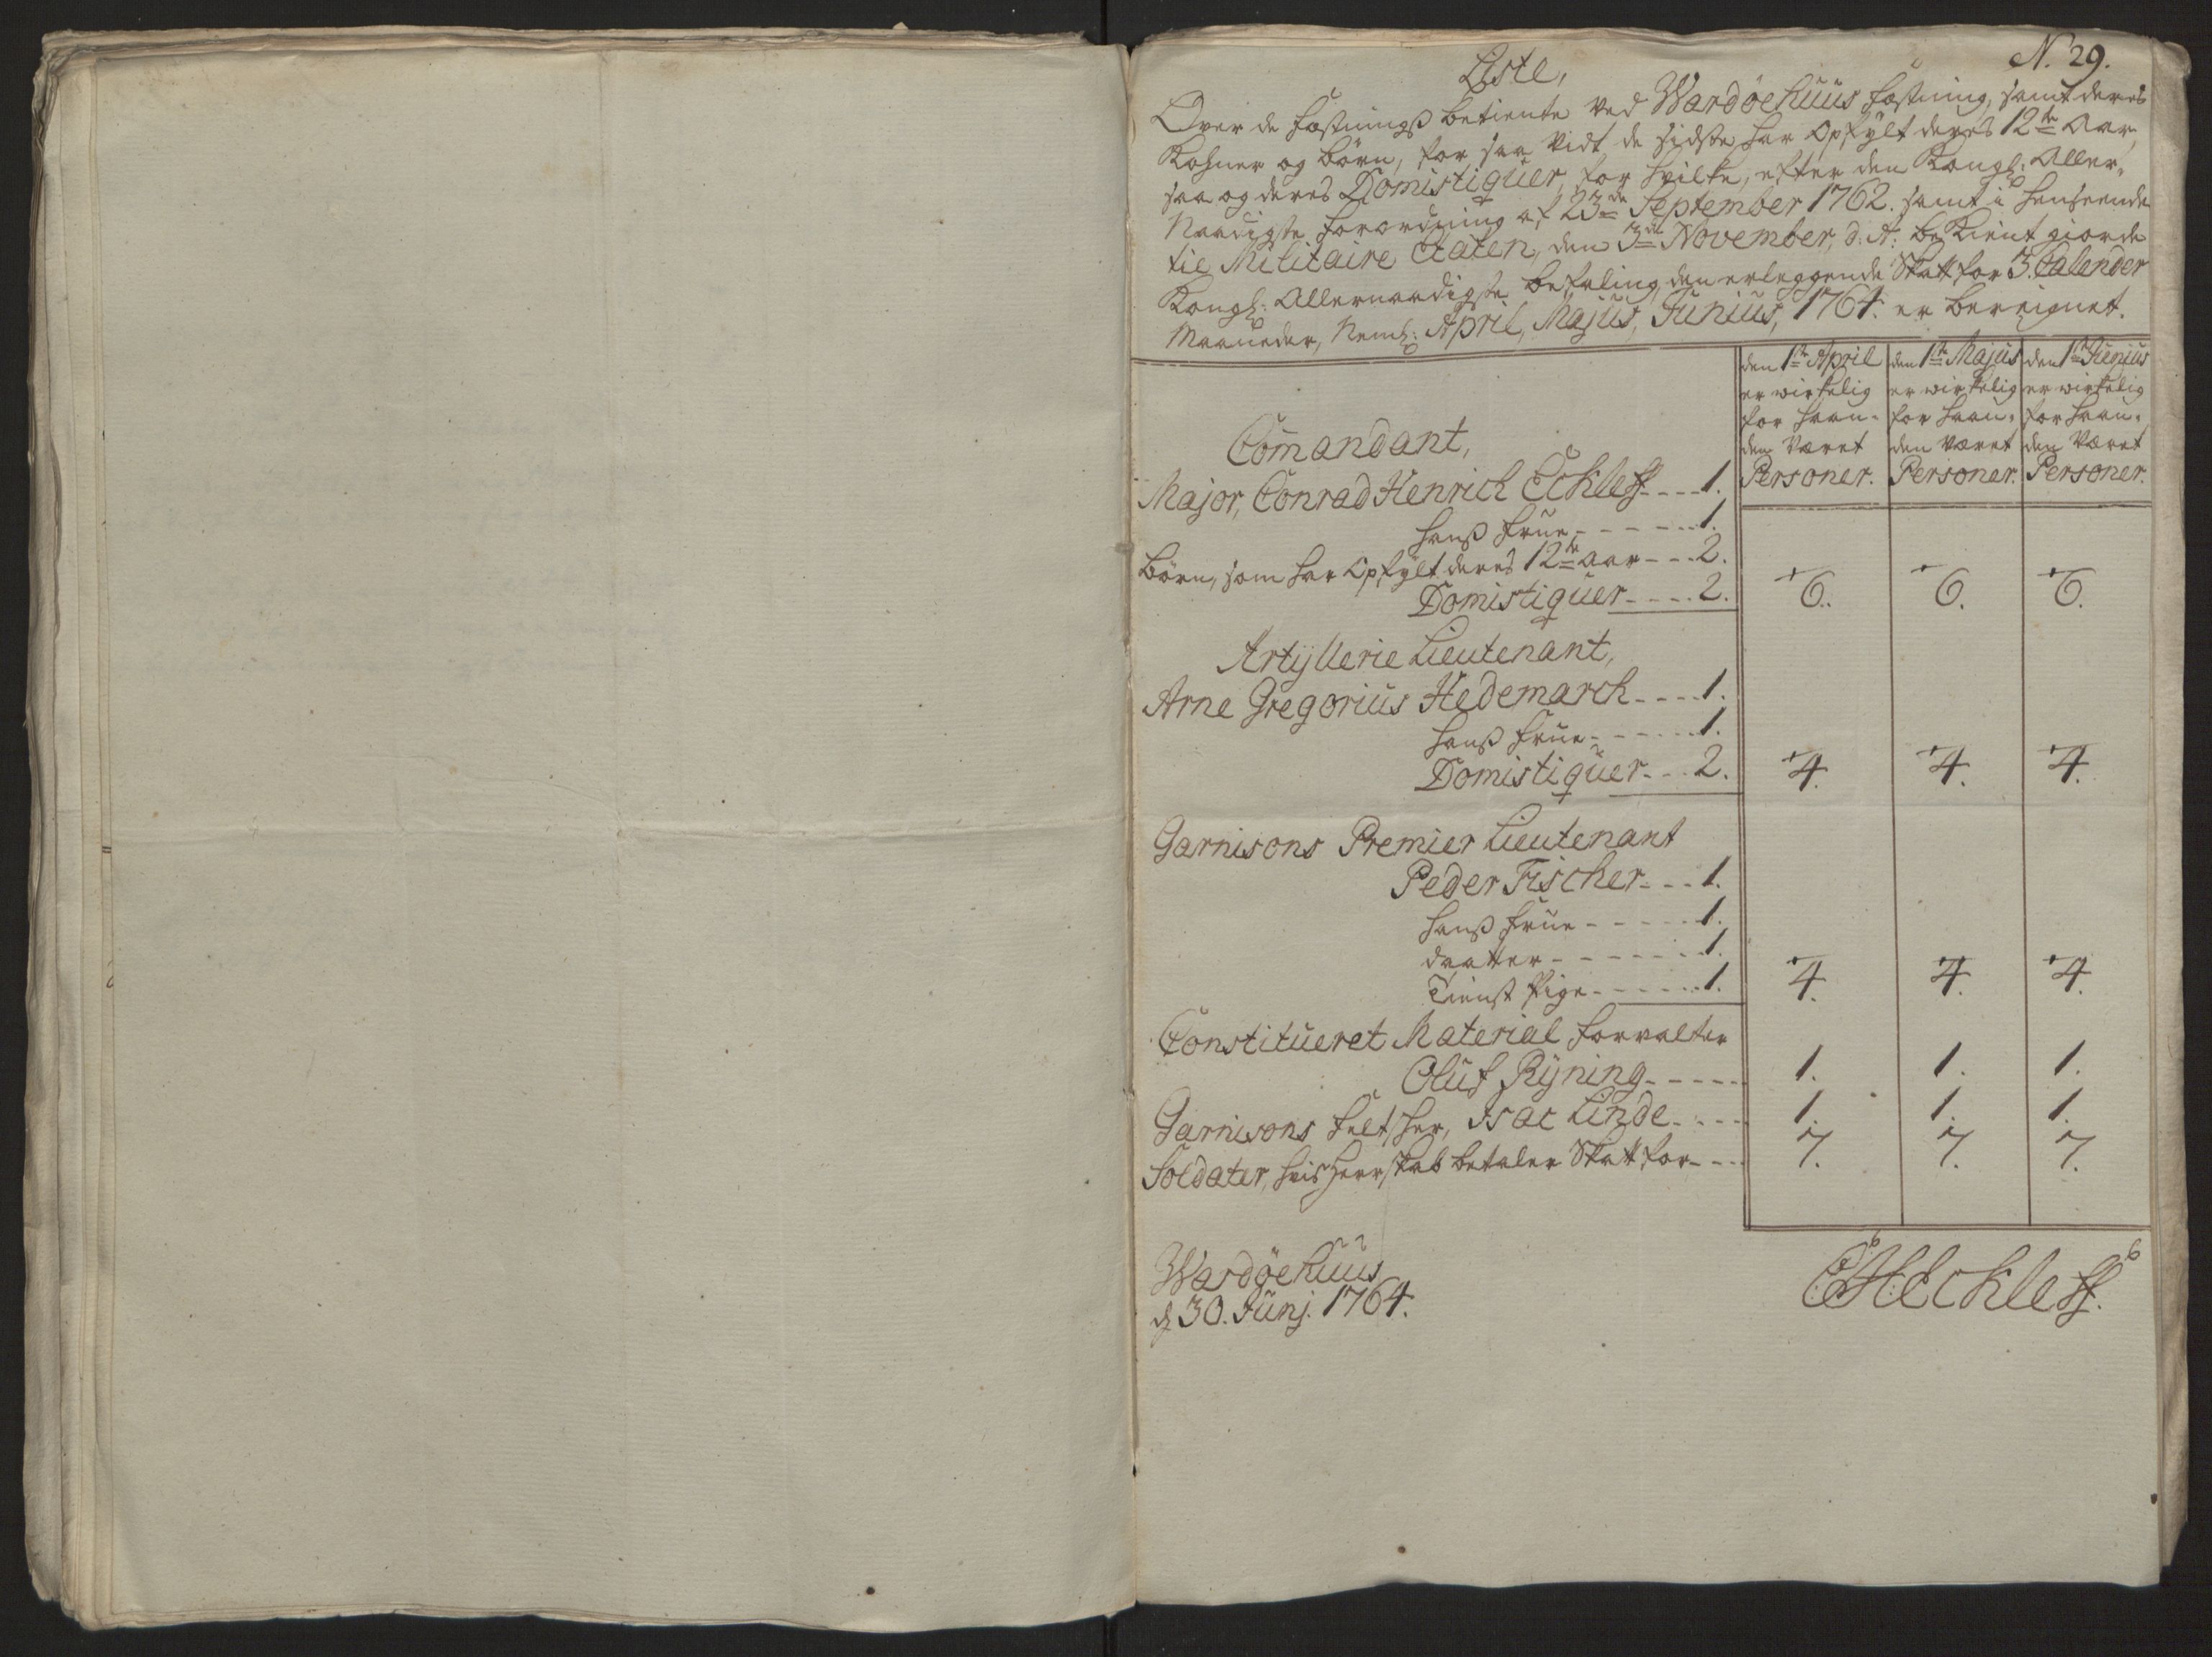 N. 29.
Liste,
Over de Fæstnings betiente ved Wardöehuus Fæstning, samt deres
Kohner og börn, for saa vidt de sidste har Opfylt deres 12te Aar,
saa og deres Domistiquer, for hvilke, efter den Kongl: Aller,,
Naadigste Forordning af 23de September 1762. samt i henseende
til Militaire Etaten, den 3de November, d: A: bekient giorde
Kongl: Allernaadigste befaling, den erleggende Skatt for 3. Calender
Maaneder, Neml: April, Majus, Junius, 1764. er bereignet.
den 1te April den 1te Majus den 1te Junius
er wirkelig er wirkelig er wirkelig
for haan- for haan- for haan-
den Været den Været den Været
Personer. Personer. Personer.
Commandant,
Major, Conrad Henrich Eckleff - - - 1.
hans Frue - - - - - 1.
Börn, som har Opfylt deres 12te Aar - - - 2.
Domistiquer - - - - 2. 6. 6. 6.
Artyllerie Lieutenant,
Arne Gregorius Hedemarch - - - - 1.
hans Frue - - - - - 1.
Domistiquer - - - 2. 4. 4. 4.
Garnisons Premier Lieutenant
Peder Fischer - - - 1.
hans Frue - - - - - 1.
daatter - - - - - - 1.
Tienst Pige - - - - - 1. 4. 4. 4.
Constitueret Material Forvalter
Oluf Rÿning - - - - - 1. 1. 1.
Garnisons Feltsher, Isac Linde - - - - 1. 1. 1.
Soldater, hvis Herrskab betaler Skatt for - - - 7. 7. 7.
Wardöehuus
d 30. Junj. 1764.
CHEckleff.